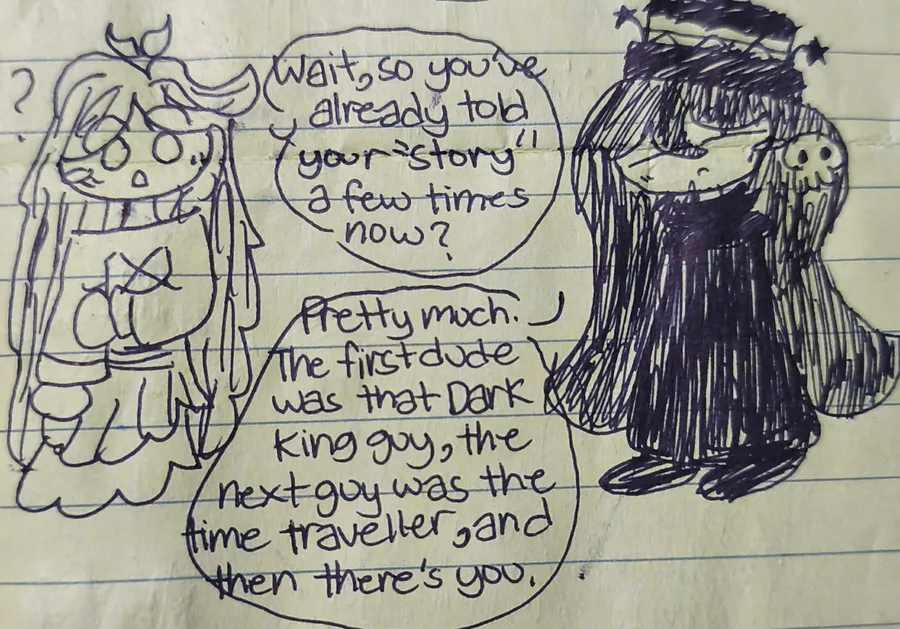 ?
Wait, so you've
already told
your "story"
a few times
now?
Pretty much.
The first dude
was that Dark
King guy, the
next guy was the
time traveller, and
then there's you.